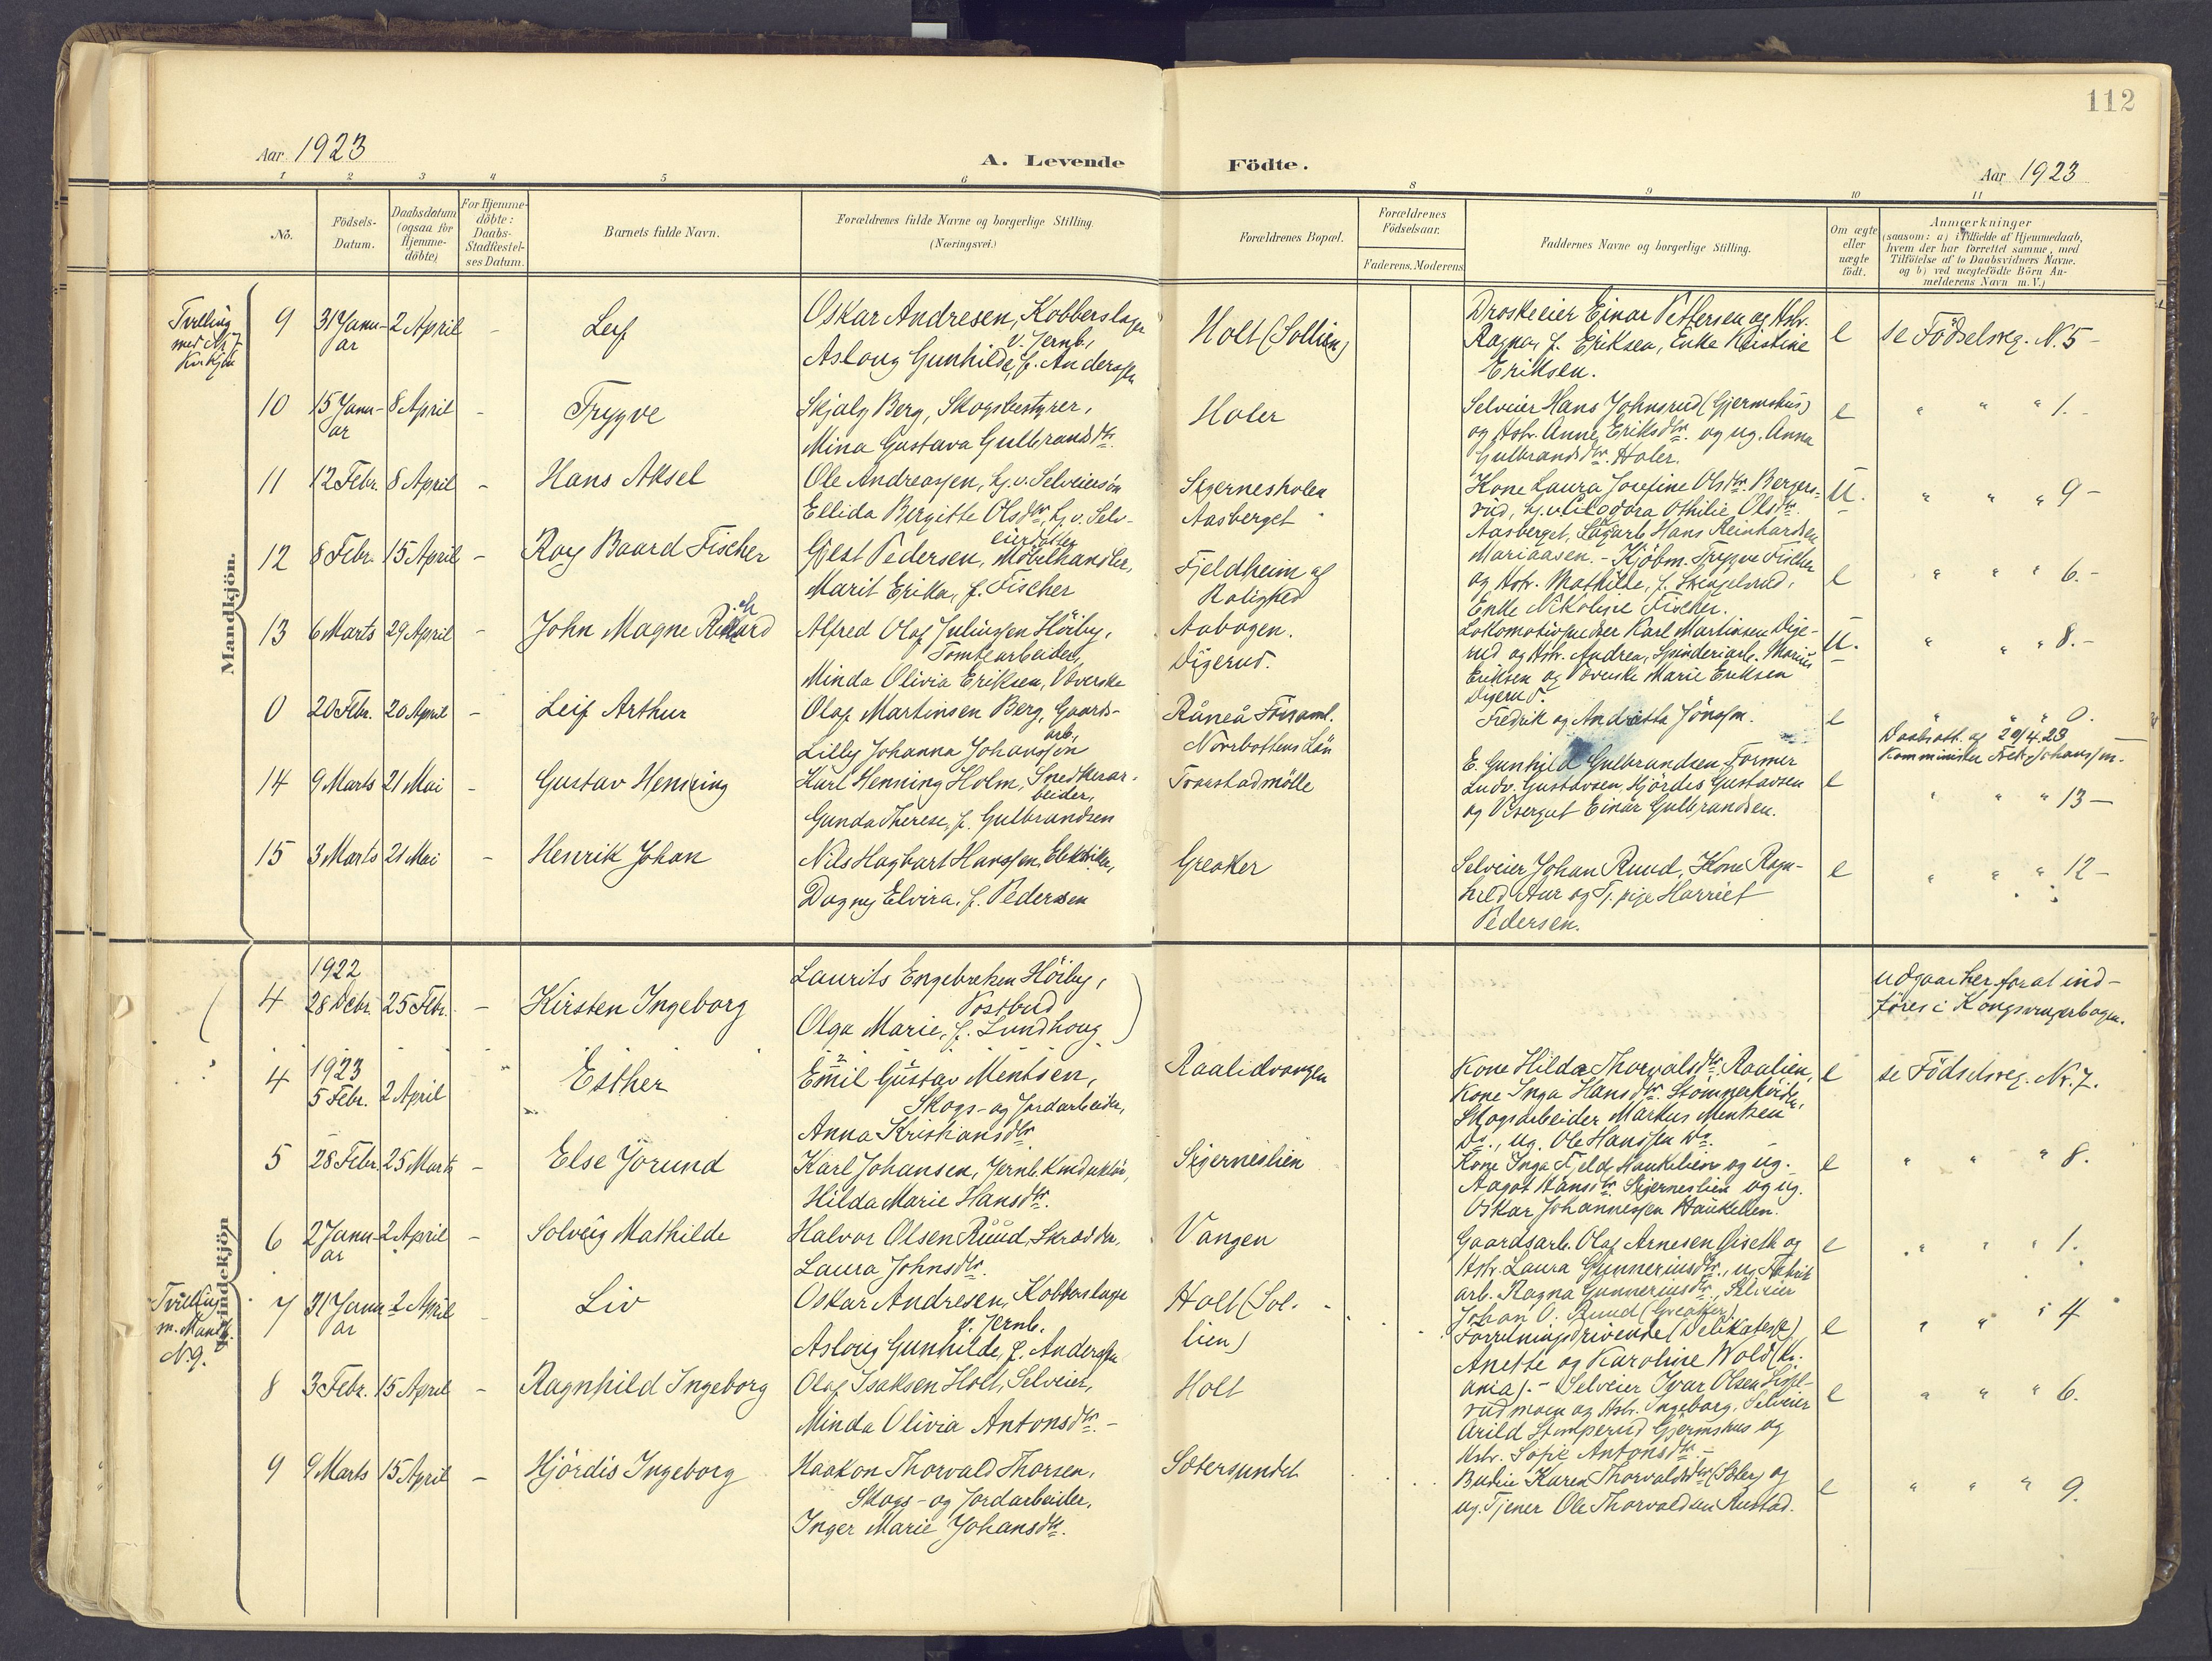 112
Aar 1923
A. Levende Födte.
Aar 1923
1 2 3 4 5 6 8 9 10 11
No.
Födsels-Datum.
Daabsdatum (ogsaa for Hjemme-döbte)
For Hjemme-döbte: Daabs-Stadfæstel-ses Datum.
Barnets fulde Navn.
Forældrenes fulde Navne og borgerlige Stilling.
(Næringsvei.)
Forældrenes Bopæl.
Forældrenes Födselsaar.
Faderens. Moderens
Faddernes Navne og borgerlige Stilling.
Om ægte eller uægte födt.
Anmærkninger
(saasom: a) i Tilfælde af Hjemmedaab,
hvem der har forrettet samme, med
Tilföielse af to Daabsvidners Navne.
og b) ved uægtefödte Börn An-
melderens Navn m.V.)
Mandkjön.
Tvilling
med N 7
Kvkjön
9 31 Janu-ar 2 April - Leif
Oskar Andresen, Kobberslager
v. Jernb.,
Aslaug Gunhilde, f. Anderssen
Holt (Sollien)
Droskeeier Einar Pettersen og Hstr.
Ragna, f. Eriksen, Enke Kristine
Eriksen.
e
se Födselsreg. N. 5 -
10 15 Janu-ar 8 April - Trygve
Skjalg Berg, Skogsbestyrer,
Mina Gustava Gulbrandsdtr.
Holer
Selveier Hans Johnsrud (Gjermshus)
og Hstr. Anne Eriksdtr. og ug. Anna
Gulbrandsdtr. Holer.
e
" " " 1. -
11 12 Febr. 8 April - Hans Aksel
Ole Andreassen, hj.v. Selveiersön
Ellida Bergitte Olsdtr., hj. v. Selv-
eierdatter
Skjernesholen
Aasberget
Kone Laura Josefine Olsdtr. Berger-
rud, Othilie Olsdtr.
Aasberget, Sagarb. Hans Reinhardsen
Mariaasen. -
U.
" " " 9 -
12 8 Febr. 15 April - Roy Baard Fischer
Gjest Pedersen, Möbelhandler,
Marit Erika, f. Fischer
Fjeldheim af
Rolighed
Kjöbm. Trygve Fischer
og Hstr. Mathilde, f.
Enke Nikoline Fischer.
e
" " " 6. -
13 6 Marts 29 April - John Magne Rikard
ch
Alfred Olaf Juliussen Höiby,
Tomtearbeider,
Minda Olivia Eriksen, Væverske
Aabogen.
Digerud.
Lokomotivpudser Karl Martinsen Dige-
rud og Hstr. Andrea, Spinderiarb. Marius
Eriksen og Væverske Marie Eriksen
Digerud.
U.
" " " 8. -
0 20 Febr. 20 April - Leif Arthur
Olaf Martinsen Berg, Gaards-
arb.,
Lilly Johanna Johanssen
Råneå Församl.
Norrbottens Län
Fredrik og Andrietta Jönssen.
e
" " " 0.
Daabsatt. af 29/4.23
Komminister Fredr. Johanssen.
14 9 Marts 21 Mai - Gustav Henning
Karl Henning Holm, Snedkerar-
beider,
Gunda Therese, f. Gulbrandsen
Transtadmölle
E. Gunhild Gulbrandsen, Former
Ludv. Gustavsen, Hjördis Gustavsen
og Visergut Einar Gulbrandsen.
e
" " " 13 -
15 3 Marts 21 Mai - Henrik Johan
Nils Hagbart Hanssen, Elektriker,
Dagny Elvira, f. Pedersen
Greaker
Selveier Johan Ruud, Kone Ragn-
hild Aur og Tj. pige Harriet
Pedersen.
e
" " " 12 -
Kvindekjön
1922
4 28 Decbr. 25 Febr. - Kirsten Ingeborg
Laurits Engebretsen Höiby,
Postbud
Olga Marie, f. Lundhoug
udgaar her for at ind-
föres i Kongsvingerbogen.
1923
4 5 Febr. 2 April Esther
Emil Gustav Mentsen,
Skogs- og Jordarbeider,
Anna Kristiansdtr.
Raalidvangen
Kone Hilda Thorvalsdtr. Raalien,
Kone Inga Hansdtr. Stömnerkirde,
Skogsarbeider Markus Mentsen
Ds., ug. Ole Hanssen Ds.
e
se Födselsreg. Nr. 7.
5 28 Febr. 25 Marts - Else Jorund
Karl Johansen, Jernb. Konduktör,
Hilda Marie Hansdtr.
Skjerneslien
Kone Inga Fjeld, Haukelien og ug.
Aagot Hansdtr. Skjerneslien og ug.
Oskar Johannessen Haukelien.
e
" " " 8.
6 2 Janu-ar 2 April - Solveig Mathilde
Halvor Olsen Ruud, Skrædder,
Laura Johnsdtr.
Vangen
Gaardsarb. Olaf Arnesen Giseth og
Hstr. Laura Gunneriusdtr., ug. Fabrik
arb. Ragna Gunneriusdtr., Selveier
Johan O. Ruud (Greaker)
e
" " " 1.
Tvilling
m. Mandk.
N. 9.
7 31 Janu-ar 2 April Liv
Oskar Andresen, Kobberslager
v. Jernb.
Aslaug Gunhilde, f. Anderssen
Holt (Sol-
lien)
Forretningsdrivende (Delikatesse)
Anette og Karoline Wold (Kr.
ania). -
e
" " " 4
8 3 Febr. 15 April - Ragnhild Ingeborg
Olaf Isaksen Holt, Selveier,
Minda Olivia Antonsdtr. -
Holt
Selveier Ivar Olsen
rudmoen og Hstr. Ingeborg, Selveier
Arild Stomperud Gjermshus og
Hstr. Sofie Antonsdtr. -
e
" " " 6.
9 9 Marts 15 April - Hjördis Ingeborg
Haakon Thorvald Thorsen,
Skogs- og Jordarbeider,
Inger Marie Johansdtr.
Sætersundet
Budeie Karen Thorvaldsdtr. (Sæter) og
ug. Tjener Ole Thorvaldsen Rustad.
e
" " " 9.